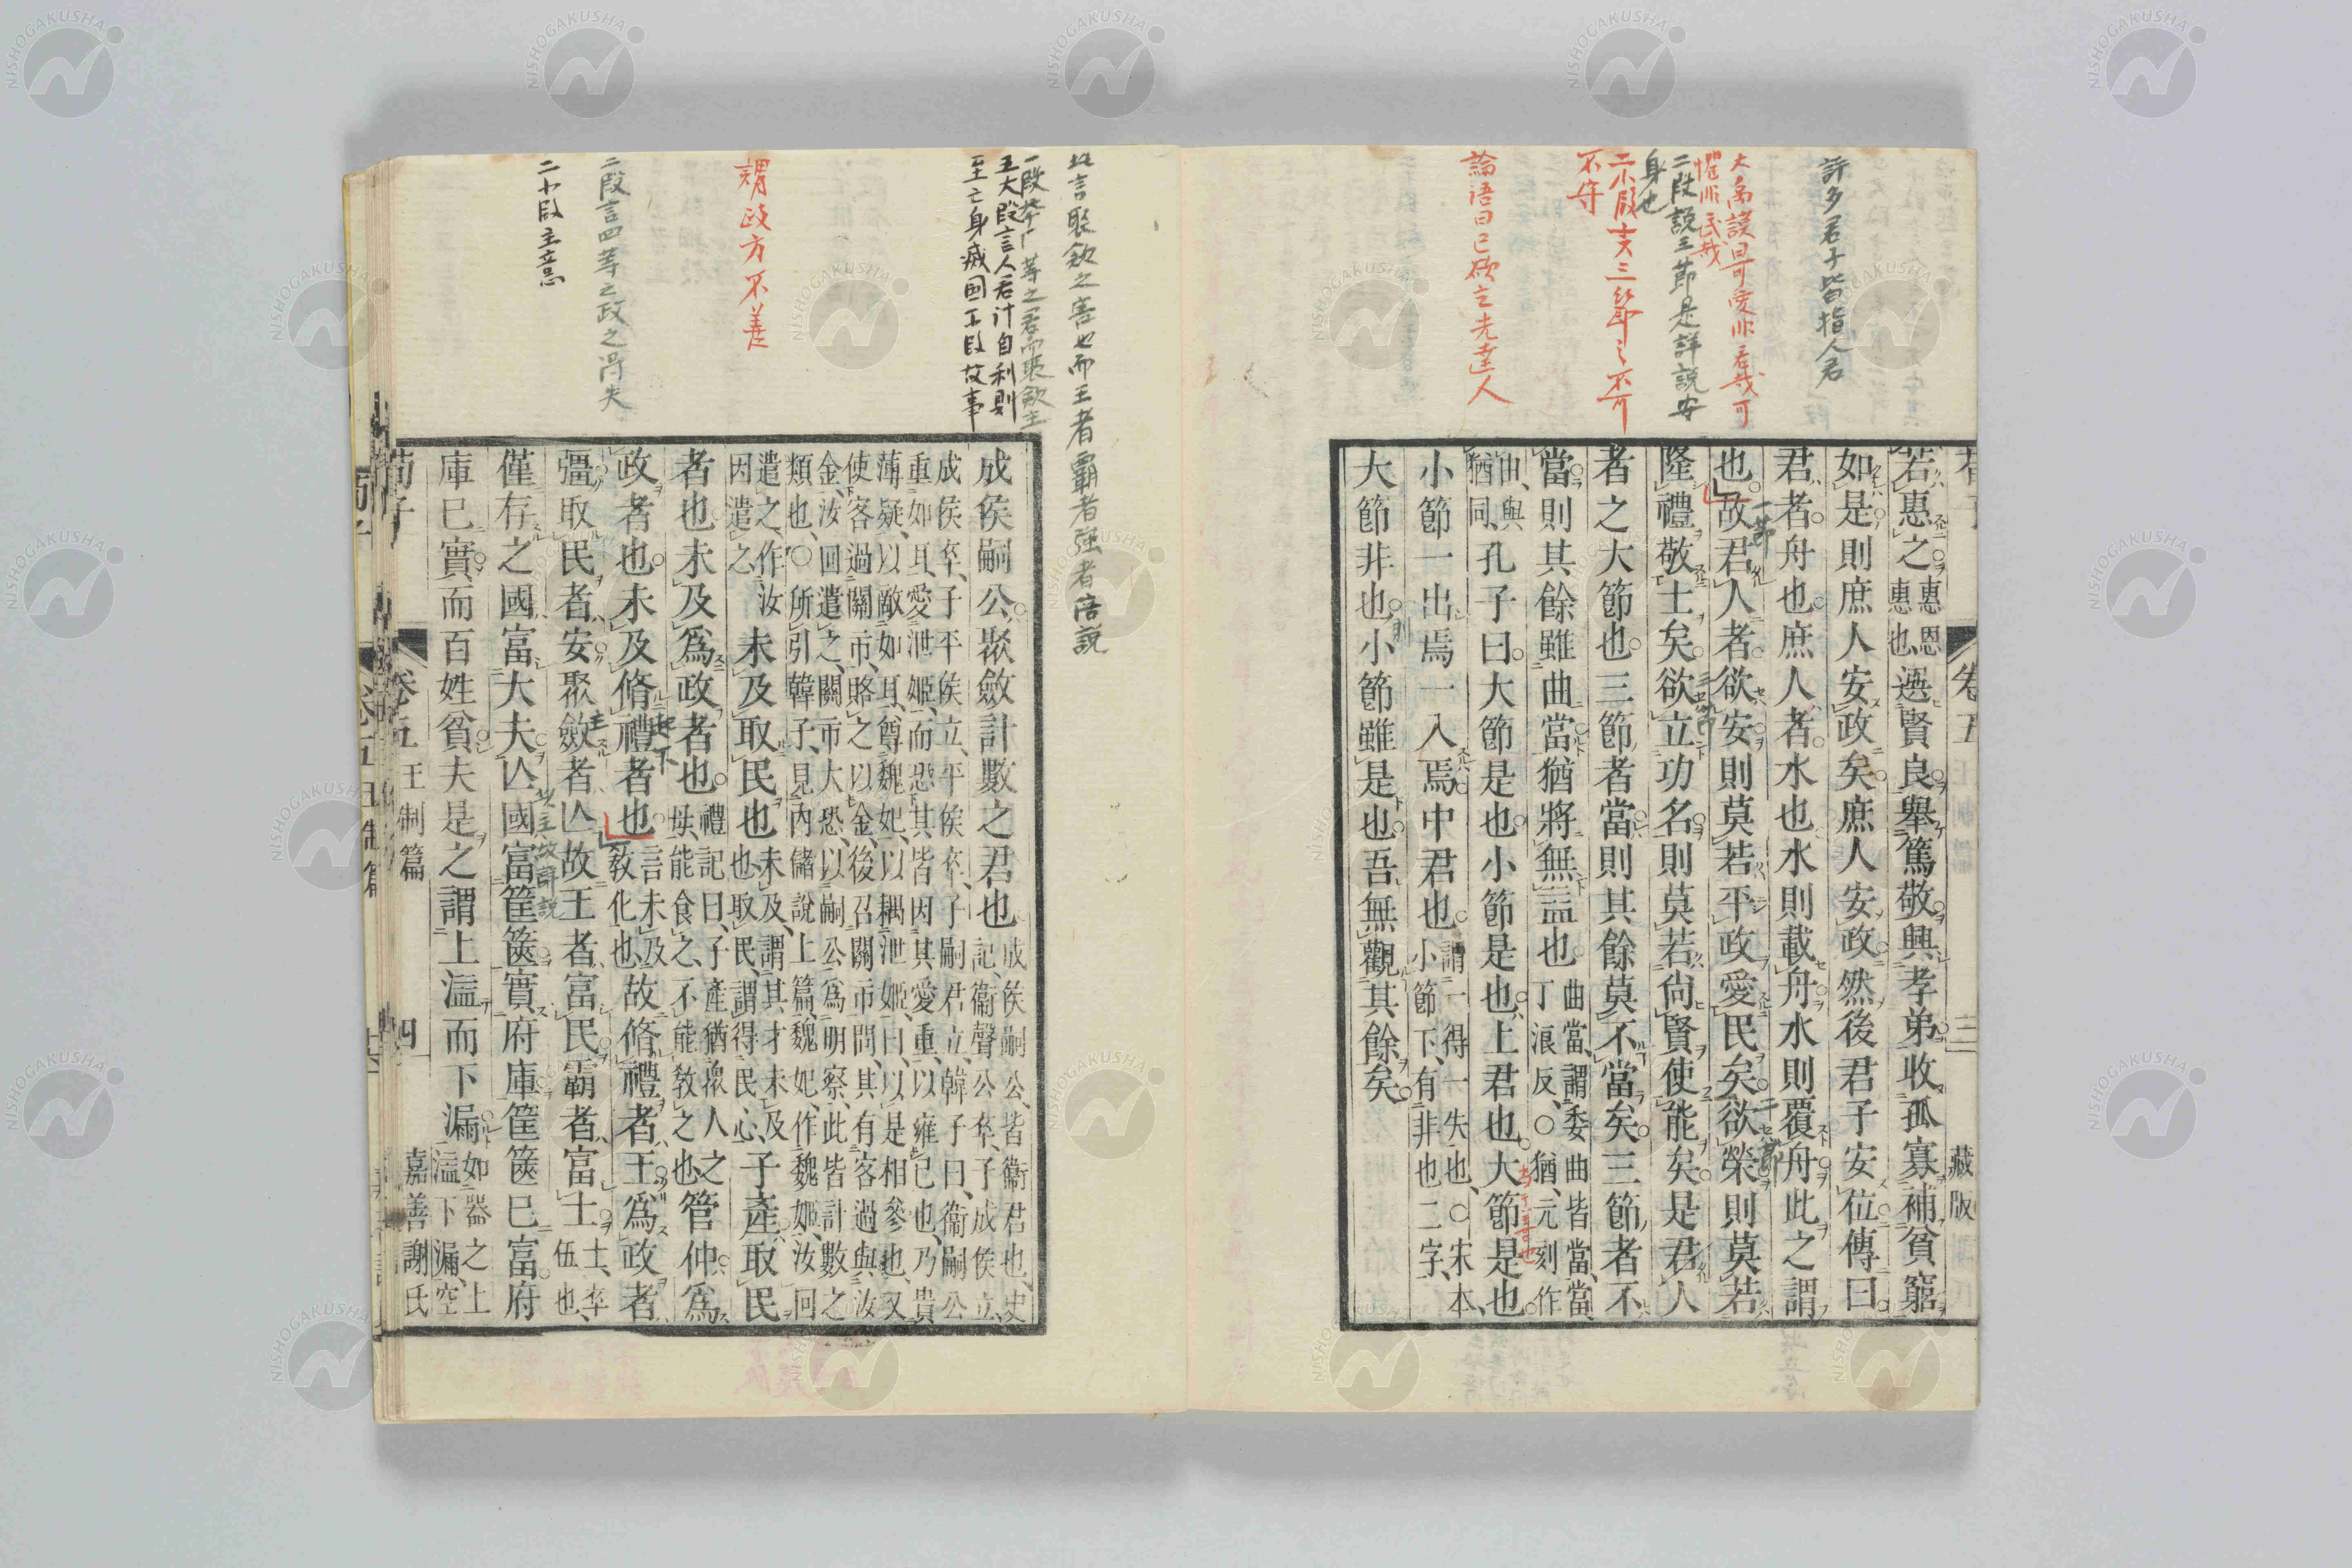 許多君子皆指人君
大禹謨曰可愛非君哉可
懼非民哉
二段説三節是詳説安
身也
不守
論語曰己欲立先達人
荀子
卷五
三
藏版
若惠之惠恩惠也選賢良舉篤敬興孝弟收孤寡補貧窮
如是則庶人安政矣庶人安政然後君子安位傳曰
君者舟也庶人者水也水則載舟水則覆舟此之謂
也故君人者欲安則莫若平政愛民矣欲榮則莫若
隆禮敬士矣欲立功名則莫若尙賢使能矣是君人
者之大節也三節者當則其餘莫不當矣三節者不
當則其餘雖曲當猶將無益也曲當謂委曲皆當當丁浪反〇猶元刻作
由與猶同孔子曰大節是也小節是也上君也大節是也
小節一出焉一入焉中君也謂一得一失也〇宋本小節下有非也二字
大節非也小節雖是也吾無觀其餘矣
此言聚斂之害也而王者霸者强者陪説
五大段言人君計自利則
至亡身滅國下段故事
謂政方不善
二段言四等之政之得失
二小段主意
成侯嗣公聚斂計數之君也成侯嗣公皆衞君也史記衞聲公卒子成侯立
成侯卒子平侯立平侯卒子嗣君立韓子曰衞嗣公
重如耳愛泄姬而恐其皆因其愛重以雍己也乃貴
薄疑以敵如耳尊魏妃以耦泄姬曰以是相參也又
使客過關市賂之以金後召關市問其有客過與汝
金汝回遣之關市大恐以嗣公爲明察此皆計數之
類也〇所引韓子見內儲說上篇魏妃作魏姬汝回
遣之作汝因遣之未及取民也未及謂其才未及也取民謂得民心子產取民
者也未及爲政者也禮記曰子產猶眾人之母能食之不能敎之也管仲爲
政者也未及脩禮者也言未及敎化也故脩禮者王爲政者
彊取民者安聚斂者亾故王者富民霸者富士士卒伍也
僅存之國富大夫亾國富筐篋實府庫筐篋已富府
庫已實而百姓貧夫是之謂上溢而下漏如器之上溢下漏空
荀子
卷五王制篇
四
嘉善謝氏